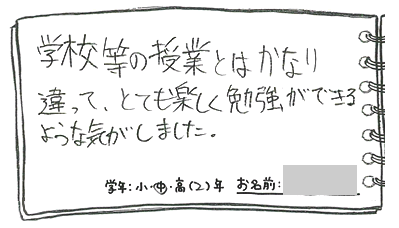 学校等の授業とはかなり
違って、とても楽しく勉強ができる
ような気がしました。
学年:小・中・高(2)年 お名前: